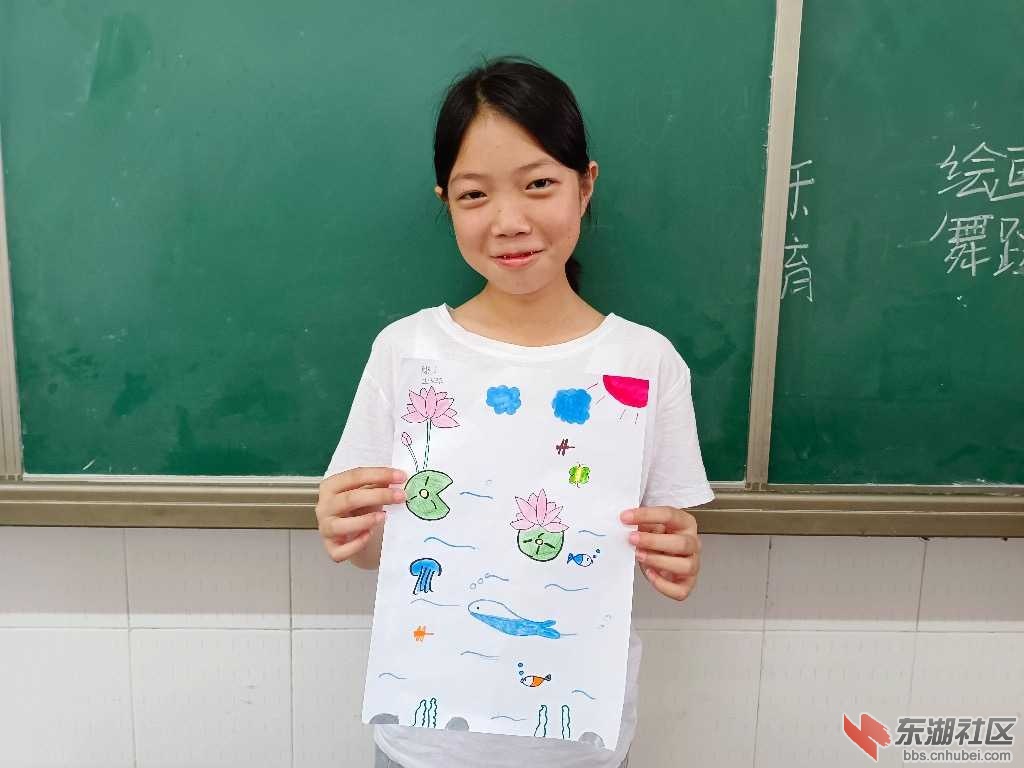 乐
育
绘画
舞蹈
东湖社区
bbs.cnhubei.com